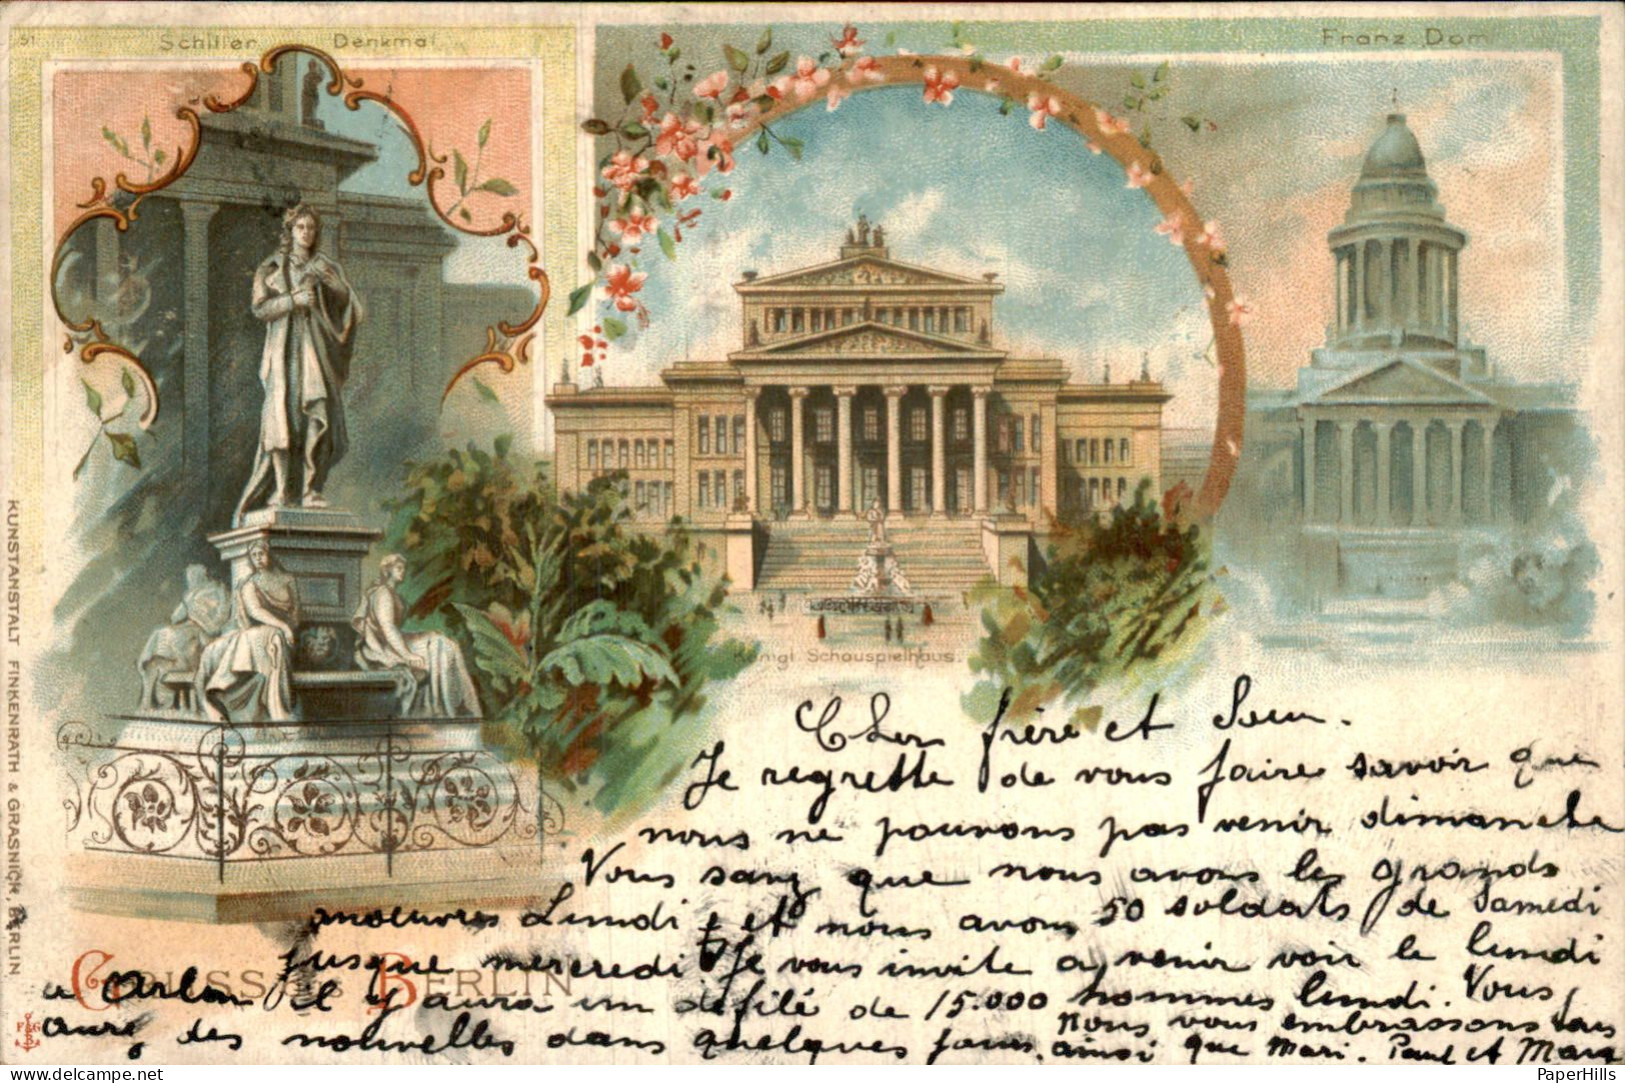 51
Schiller Denkmal
Franz. Dom
Königl. Schauspielhaus.
KUNSTANSTALT FINKENRATH & GRASNICK, BERLIN
Gruss aus Berlin
F G
B
Cher frère et Sœur.
Je regrette de vous faire savoir que
nous ne pouvons pas venir dimanche
Vous savez que nous avons les grands
manœuvres Lundi, et nous avons 50 soldats de Samedi
jusque mercredi Je vous invite a venir voir le lundi
a Arlon il y aura un défilé de 15.000 hommes lundi. Vous
aurez des nouvelles dans quelques jours.
Nous vous embrassons tous
ainsi que Mari. Paul et Maria
PaperHills